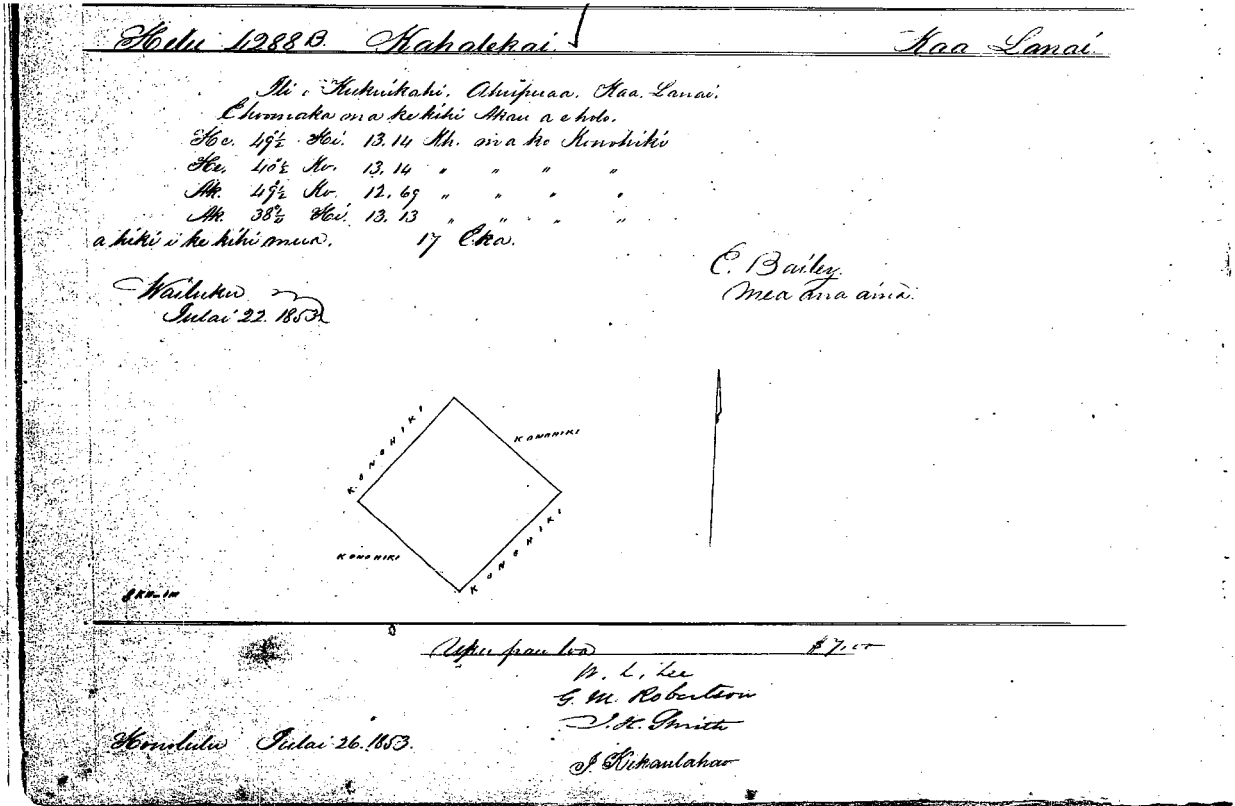 Helu 4288 B. Kahalekai. Kaa Lanai.
Ili, Kukuikahi. Ahupuaa. Kaa. Lanai.
E hoomaka ma ke kihi Akau a e holo.
He. 49½° Hi. 13.14 Kh. ma ko Konohiki
He. 40½° Ko. 13.14 " " " "
Ak. 49½° Ko. 12.69 " " " "
Ak. 38½° Hi. 13.13 " " " "
a hiki i ke kihi mua. 17 Eka.
E. Bailey.
Mea ana aina.
Wailuku
Iulai 22. 1853
KONOHIKI
KONOHIKI
KONOHIKI
KONOHIKI
Uku pau loa $7.00
W. L. Lee
G. M. Robertson
J. H. Smith
Honolulu Iulai 26. 1853.
J. Kekaulahao